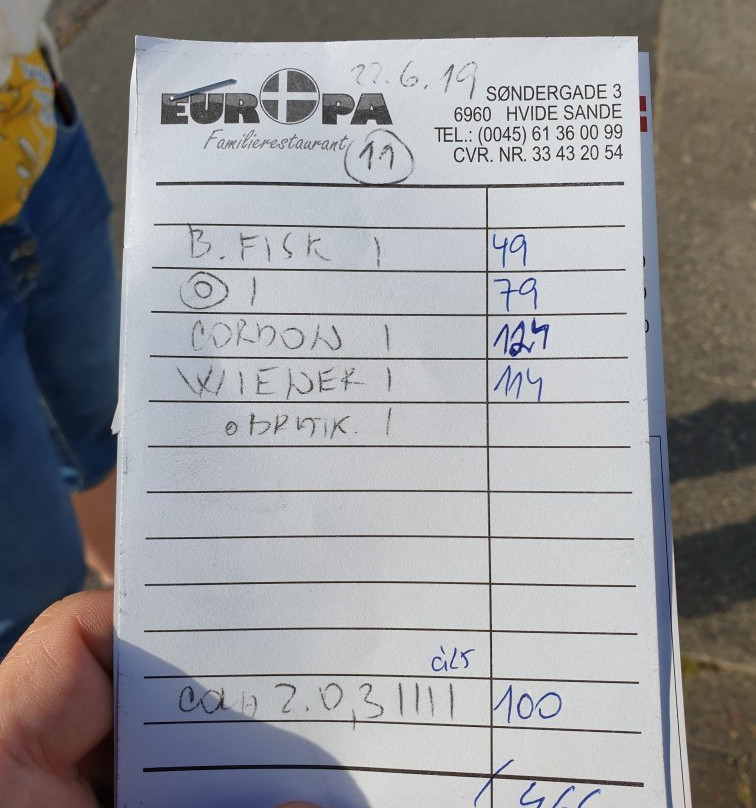 22.6.19
EUROPA
Familierestaurant
11
SØNDERGADE 3
6960 HVIDE SANDE
TEL.: (0045) 61 36 00 99
CVR. NR. 33 43 20 54
B. FISK 1 49
O 1 79
CORDON 1 124
WIENER 1 114
1
à 25
cola 2.0,3 IIII 100
466